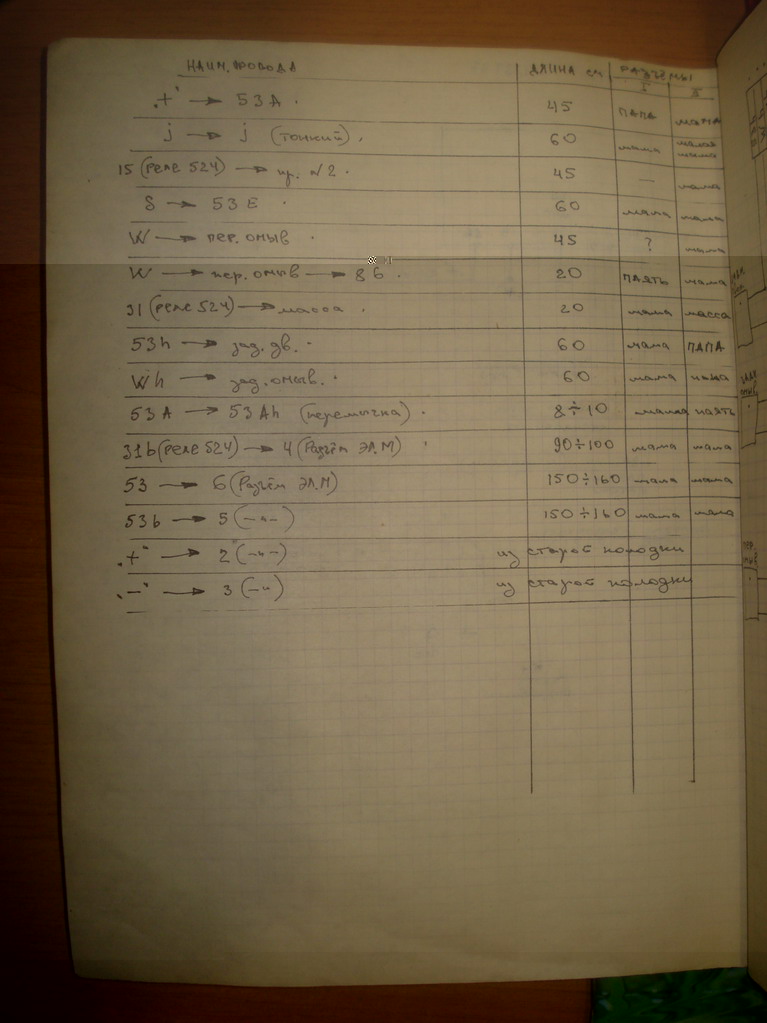 НАИМ. ПРОВОДА ДЛИНА см РАЗЪЁМЫ
I II
"+" → 53A. 45 ПАПА мама
j → j (тонкий). 60 мама малая мама
15 (реле 524) → пр. №2. 45 — мама
S → 53E. 60 мама мама
W → пер. омыв. 45 ? мама
W → пер. омыв → 86. 20 ПАЯТЬ мама
31 (реле 524) → масса. 20 мама масса
53h → зад. дв. 60 мама ПАПА
Wh → зад. омыв. 60 мама мама
53A → 53Ah (перемычка). 8÷10 мама паять
31b (реле 524) → 4 (Разъём ЭЛ.М) 90÷100 мама мама
53 → 6 (Разъём ЭЛ.М) 150÷160 мама мама
53b → 5 (-"-) 150÷160 мама мама
"+" → 2 (-"-) из старой колодки
"-" → 3 (-"-) из старой колодки